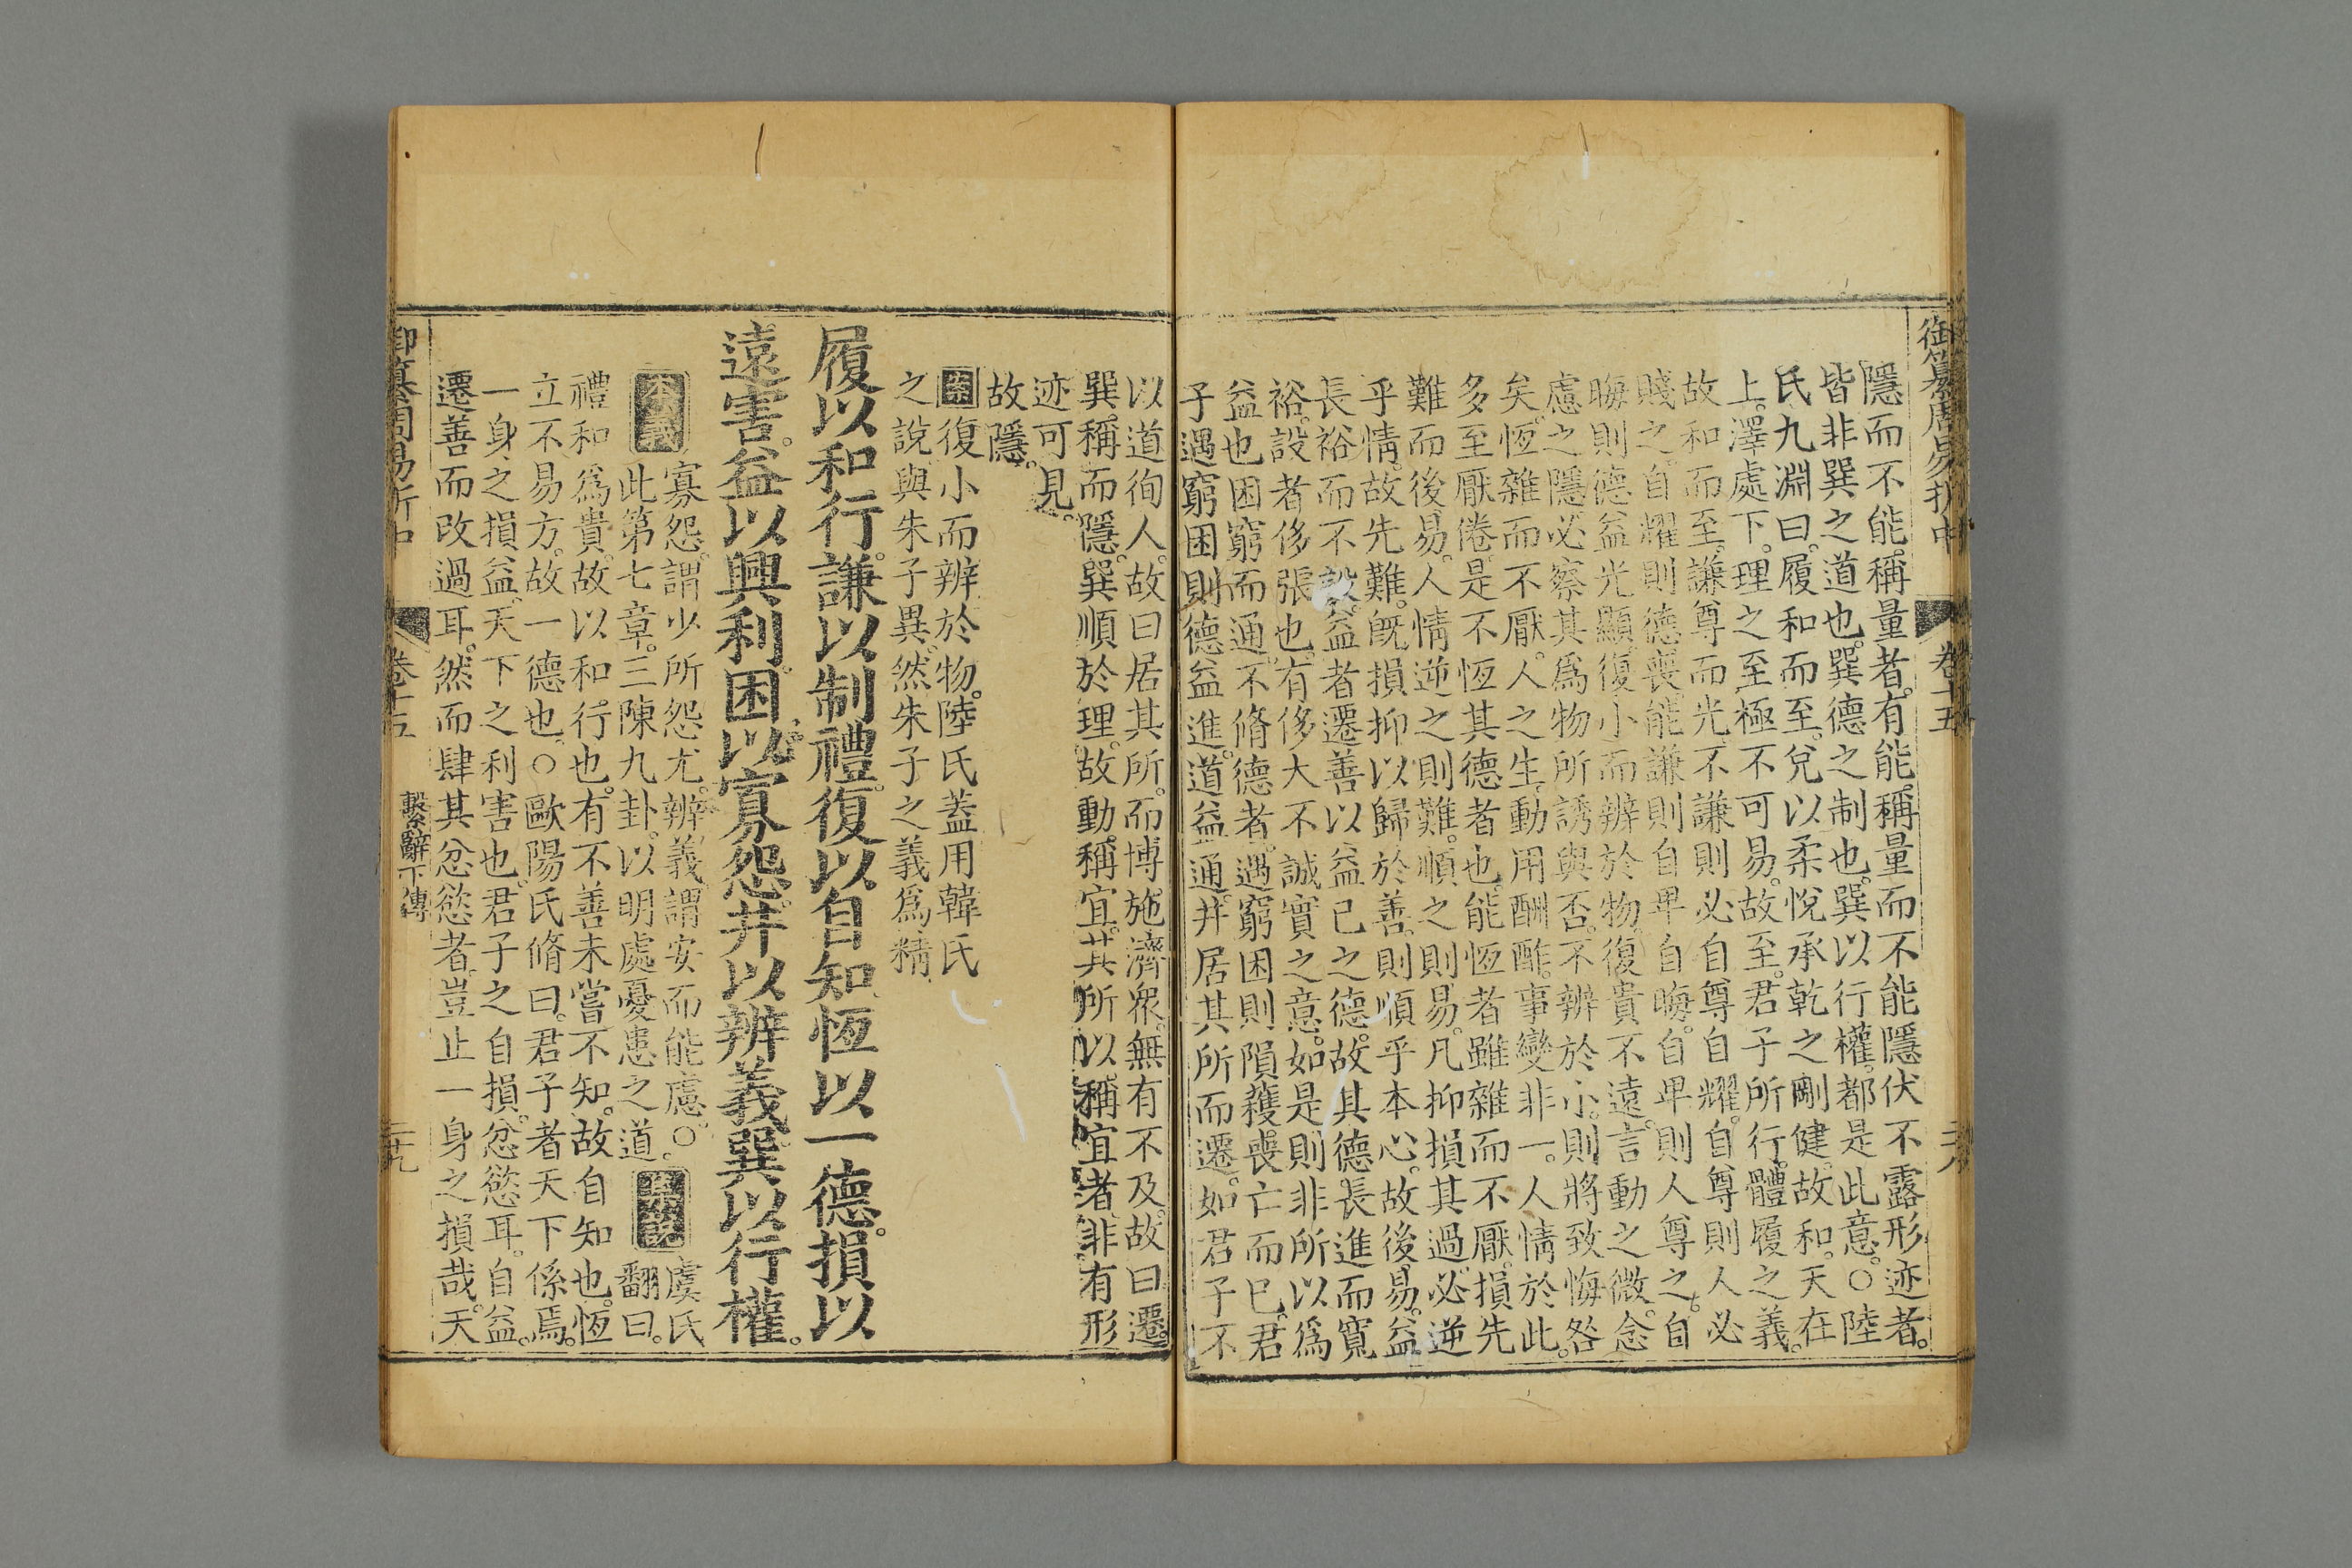 御纂周易折中
卷十五
隱而不能稱量者。有能稱量而不能隱伏不露形迹者。
皆非巽之道也。巽德之制也。巽以行權。都是此意。○陸
氏九淵曰。履和而至。兌以柔悅承乾之剛健。故和。天在
上。澤處下。理之至極不可易。故至。君子所行。體履之義。
故和而至。謙尊而光。不謙則必自尊自耀。自尊則人必
賤之。自耀則德喪。能謙則自卑自晦。自卑則人尊之。自
晦則德益光顯。復小而辨於物。復貴不遠。言動之微。念
慮之隱。必察其爲物所誘與否。不辨於小。則將致悔咎
矣。恆雜而不厭。人之生。動用酬酢。事變非一。人情於此。
多至厭倦。是不恆其德者也。能恆者雖雜而不厭。損先
難而後易。人情逆之則難。順之則易。凡抑損其過必逆
乎情。故先難。既損抑以歸於善。則順乎本心。故後易。益
長裕而不設。益者遷善以益己之德。故其德長進而寬
裕。設者侈張也。有侈大不誠實之意。如是則非所以爲
益也。困窮而通。不脩德者。遇窮困則隕穫喪亡而已。君
子遇窮困則德益進。道益通。井居其所而遷。如君子不
以道徇人。故曰居其所。而博施濟衆。無有不及。故曰遷。
巽稱而隱。巽順於理。故動稱宜。其所以稱宜者。非有形
迹可見。
故隱。
案復小而辨於物。陸氏蓋用韓氏
之說。與朱子異。然朱子之義爲精。
履以和行。謙以制禮。復以自知。恆以一德。損以
遠害。益以興利。困以寡怨。井以辨義。巽以行權。
本義
寡怨。謂少所怨尤。辨義。謂安而能慮。○
此第七章。三陳九卦。以明處憂患之道。
集說
虞氏
翻曰。
禮和爲貴。故以和行也。有不善未嘗不知。故自知也。恆
立不易方。故一德也。○歐陽氏脩曰。君子者天下係焉。
一身之損益。天下之利害也。君子之自損。忿慾耳。自益。
遷善而改過耳。然而肆其忿慾者。豈止一身之損哉。天
御纂周易折中
卷十五
繫辭下傳
二十九